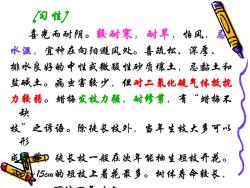 [习性]
喜光而耐阴。较耐寒，耐旱，怕风，忌
水湿，宜种在向阳避风处。喜疏松、深厚、
排水良好的中性或微酸性砂质壤土，忌黏土和
盐碱土。病虫害较少，但对二氧化硫气体抵抗
力较弱。蜡梅发枝力强，耐修剪，有“蜡梅不
缺
枝”之谚语。除徒长枝外，当年生枝大多可以
形
徒长枝一般在次年能抽生短枝开花。
15cm的短枝上着花最多。树体寿命较长，